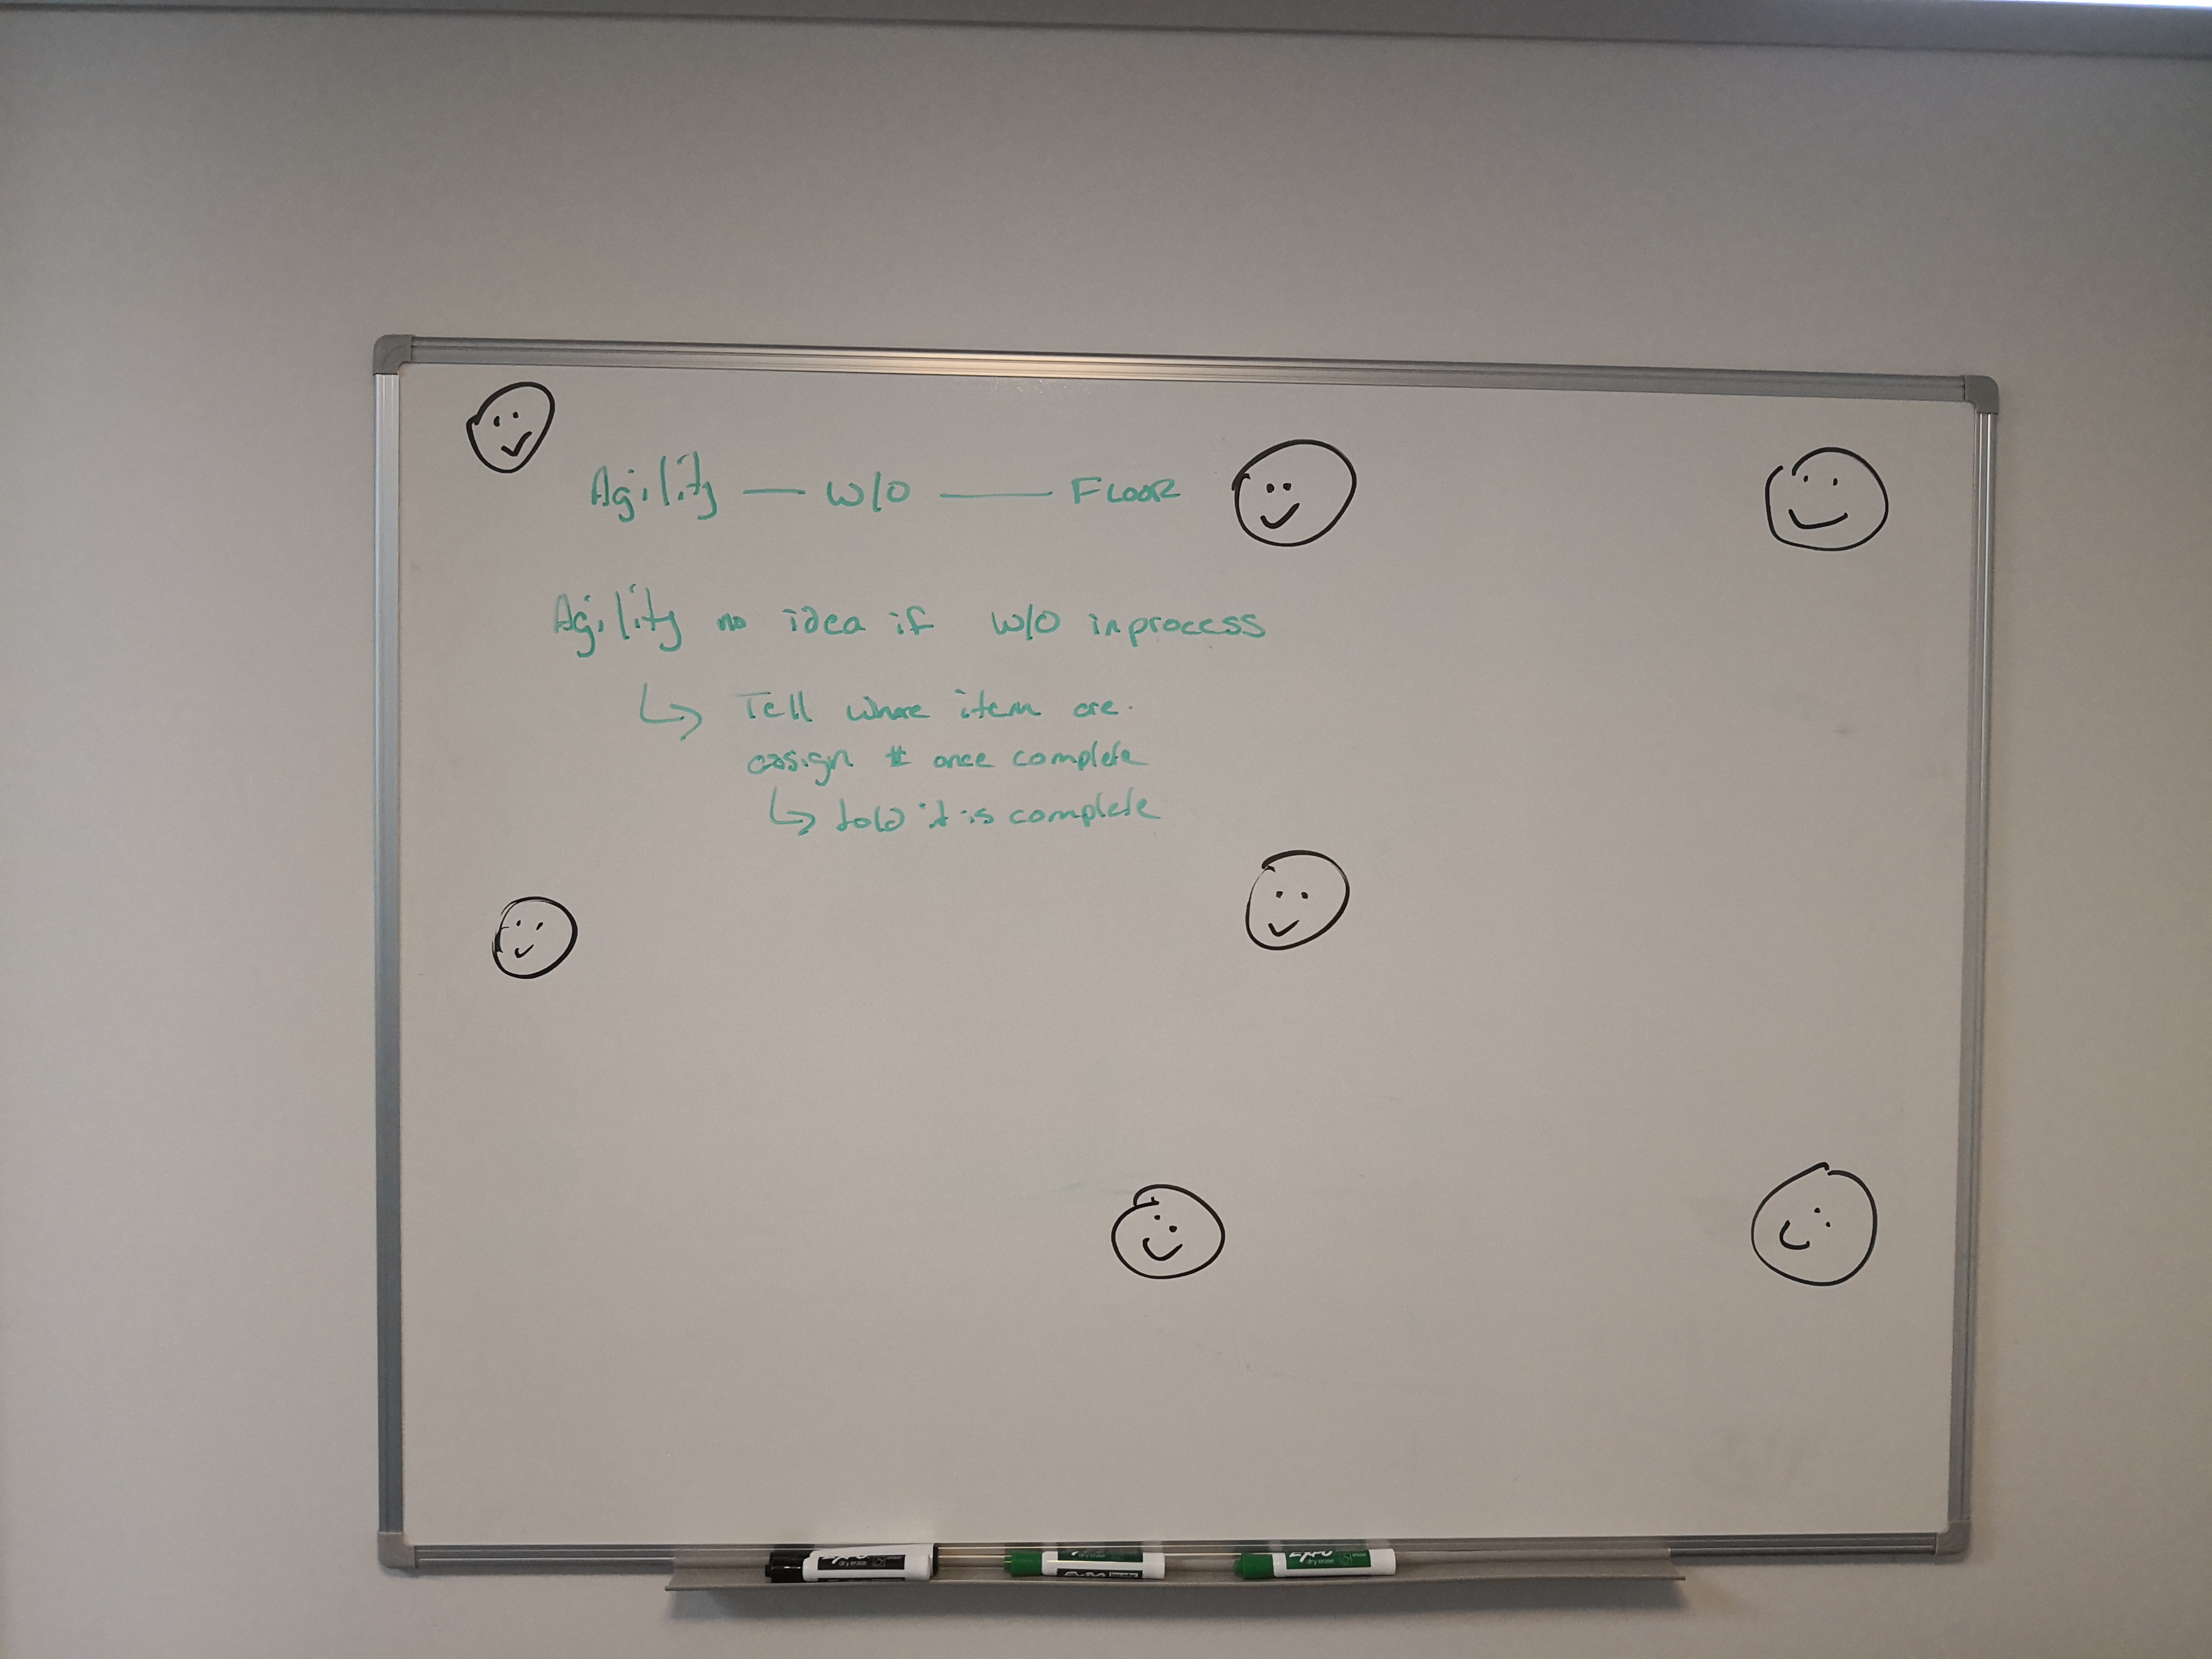 Agility — W/O — FLOOR
Agility no idea if W/O inprocess
↳ Tell where item are.
assign # once complete
↳ told it is complete
EXPO
dry erase
EXPO
dry erase